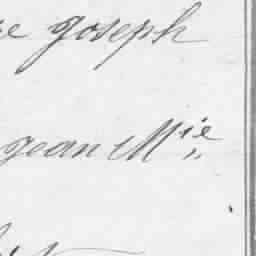 e joseph
jean Mie